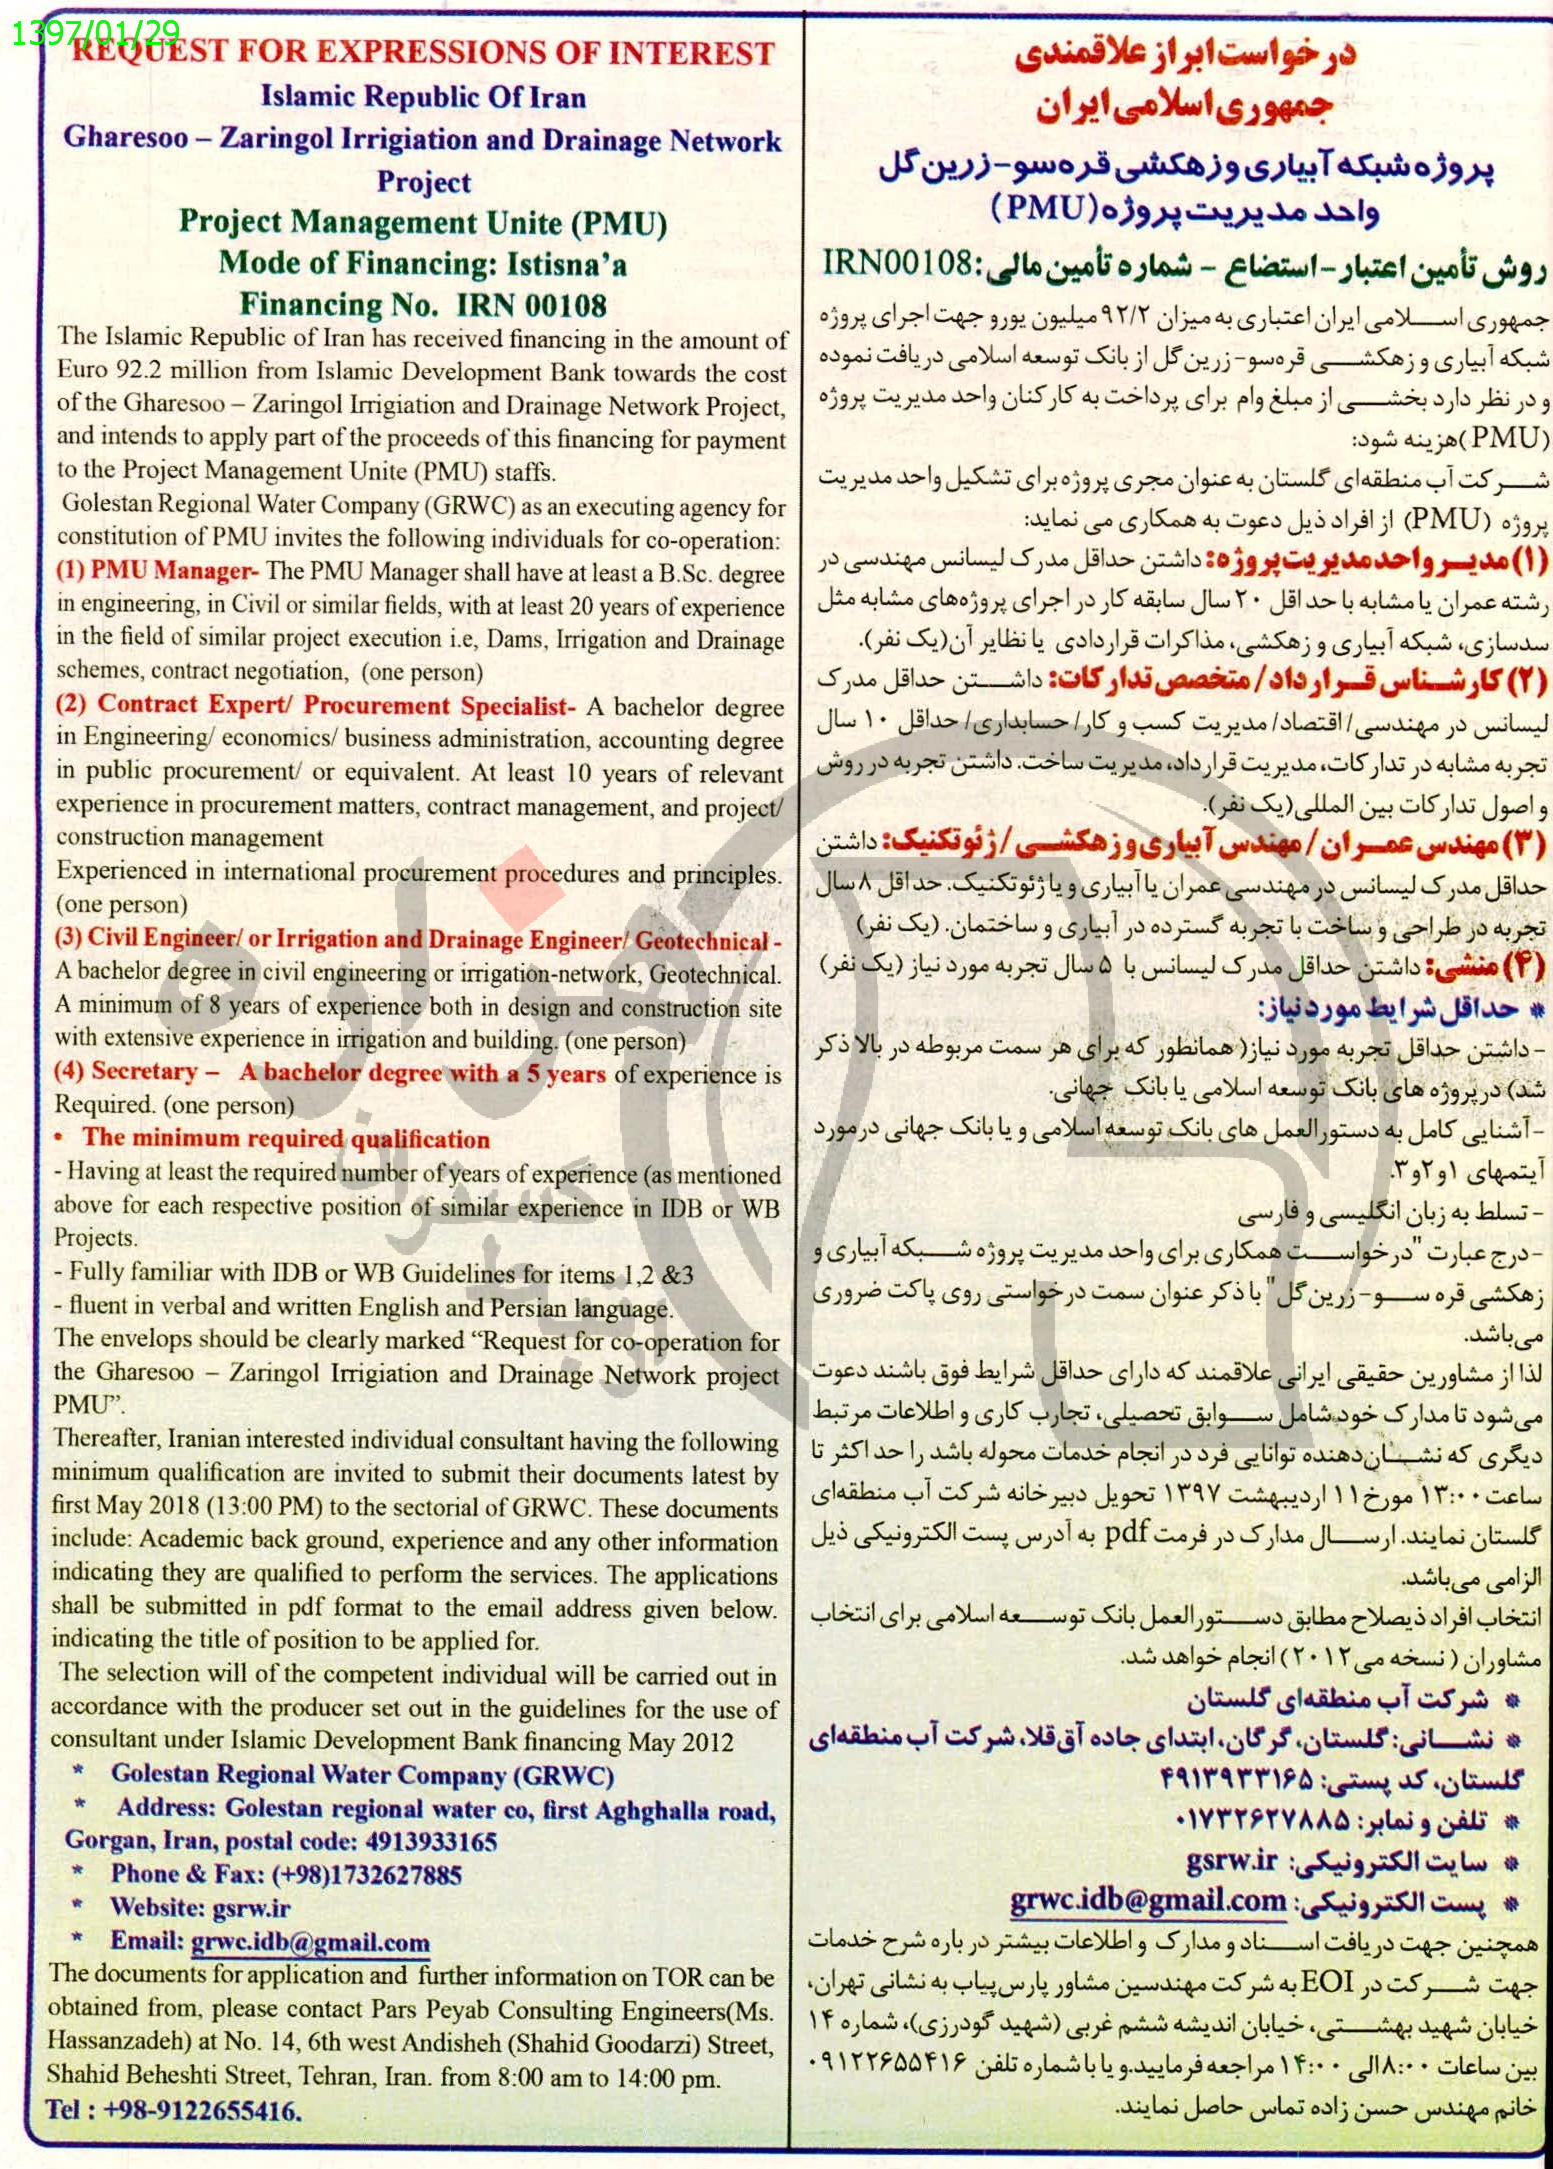 1397/01/29
REQUEST FOR EXPRESSIONS OF INTEREST
Islamic Republic Of Iran
Gharesoo – Zaringol Irrigiation and Drainage Network
Project
Project Management Unite (PMU)
Mode of Financing: Istisna’a
Financing No. IRN 00108
The Islamic Republic of Iran has received financing in the amount of
Euro 92.2 million from Islamic Development Bank towards the cost
of the Gharesoo – Zaringol Irrigiation and Drainage Network Project,
and intends to apply part of the proceeds of this financing for payment
to the Project Management Unite (PMU) staffs.
Golestan Regional Water Company (GRWC) as an executing agency for
constitution of PMU invites the following individuals for co-operation:
(1) PMU Manager- The PMU Manager shall have at least a B.Sc. degree
in engineering, in Civil or similar fields, with at least 20 years of experience
in the field of similar project execution i.e, Dams, Irrigation and Drainage
schemes, contract negotiation, (one person)
(2) Contract Expert/ Procurement Specialist- A bachelor degree
in Engineering/ economics/ business administration, accounting degree
in public procurement/ or equivalent. At least 10 years of relevant
experience in procurement matters, contract management, and project/
construction management
Experienced in international procurement procedures and principles.
(one person)
(3) Civil Engineer/ or Irrigation and Drainage Engineer/ Geotechnical -
A bachelor degree in civil engineering or irrigation-network, Geotechnical.
A minimum of 8 years of experience both in design and construction site
with extensive experience in irrigation and building. (one person)
(4) Secretary – A bachelor degree with a 5 years of experience is
Required. (one person)
• The minimum required qualification
- Having at least the required number of years of experience (as mentioned
above for each respective position of similar experience in IDB or WB
Projects.
- Fully familiar with IDB or WB Guidelines for items 1,2 &3
- fluent in verbal and written English and Persian language.
The envelops should be clearly marked “Request for co-operation for
the Gharesoo – Zaringol Irrigiation and Drainage Network project
PMU”.
Thereafter, Iranian interested individual consultant having the following
minimum qualification are invited to submit their documents latest by
first May 2018 (13:00 PM) to the sectorial of GRWC. These documents
include: Academic back ground, experience and any other information
indicating they are qualified to perform the services. The applications
shall be submitted in pdf format to the email address given below.
indicating the title of position to be applied for.
The selection will of the competent individual will be carried out in
accordance with the producer set out in the guidelines for the use of
consultant under Islamic Development Bank financing May 2012
* Golestan Regional Water Company (GRWC)
* Address: Golestan regional water co, first Aghghalla road,
Gorgan, Iran, postal code: 4913933165
* Phone & Fax: (+98)1732627885
* Website: gsrw.ir
* Email: grwc.idb@gmail.com
The documents for application and further information on TOR can be
obtained from, please contact Pars Peyab Consulting Engineers(Ms.
Hassanzadeh) at No. 14, 6th west Andisheh (Shahid Goodarzi) Street,
Shahid Beheshti Street, Tehran, Iran. from 8:00 am to 14:00 pm.
Tel : +98-9122655416.
درخواست ابراز علاقمندی
جمهوری اسلامی ایران
پروژه شبکه آبیاری و زهکشی قره‌سو-زرین‌گل
واحد مدیریت پروژه (PMU)
روش تأمین اعتبار-استضاع - شماره تأمین مالی: IRN00108
جمهوری اسلامی ایران اعتباری به میزان ۹۲/۲ میلیون یورو جهت اجرای پروژه
شبکه آبیاری و زهکشی قره‌سو-زرین‌گل از بانک توسعه اسلامی دریافت نموده
و در نظر دارد بخشی از مبلغ وام برای پرداخت به کارکنان واحد مدیریت پروژه
(PMU) هزینه شود:
شرکت آب منطقه‌ای گلستان به عنوان مجری پروژه برای تشکیل واحد مدیریت
پروژه (PMU) از افراد ذیل دعوت به همکاری می نماید:
(۱) مدیر واحد مدیریت پروژه: داشتن حداقل مدرک لیسانس مهندسی در
رشته عمران یا مشابه با حداقل ۲۰ سال سابقه کار در اجرای پروژه‌های مشابه مثل
سدسازی، شبکه آبیاری و زهکشی، مذاکرات قراردادی یا نظایر آن (یک نفر).
(۲) کارشناس قرارداد/ متخصص تدارکات: داشتن حداقل مدرک
لیسانس در مهندسی/ اقتصاد/ مدیریت کسب و کار/ حسابداری/ حداقل ۱۰ سال
تجربه مشابه در تدارکات، مدیریت قرارداد، مدیریت ساخت. داشتن تجربه در روش
و اصول تدارکات بین المللی (یک نفر).
(۳) مهندس عمران/ مهندس آبیاری و زهکشی/ ژئوتکنیک: داشتن
حداقل مدرک لیسانس در مهندسی عمران یا آبیاری و یا ژئوتکنیک. حداقل ۸ سال
تجربه در طراحی و ساخت با تجربه گسترده در آبیاری و ساختمان. (یک نفر)
(۴) منشی: داشتن حداقل مدرک لیسانس با ۵ سال تجربه مورد نیاز (یک نفر)
* حداقل شرایط مورد نیاز:
- داشتن حداقل تجربه مورد نیاز( همانطور که برای هر سمت مربوطه در بالا ذکر
شد) در پروژه های بانک توسعه اسلامی یا بانک جهانی.
- آشنایی کامل به دستورالعمل های بانک توسعه اسلامی و یا بانک جهانی در مورد
آیتمهای ۱و۲و۳.
- تسلط به زبان انگلیسی و فارسی
- درج عبارت "درخواست همکاری برای واحد مدیریت پروژه شبکه آبیاری و
زهکشی قره سو-زرین‌گل" با ذکر عنوان سمت درخواستی روی پاکت ضروری
می‌باشد.
لذا از مشاورین حقیقی ایرانی علاقمند که دارای حداقل شرایط فوق باشند دعوت
می‌شود تا مدارک خود شامل سوابق تحصیلی، تجارب کاری و اطلاعات مرتبط
دیگری که نشان‌دهنده توانایی فرد در انجام خدمات محوله باشد را حداکثر تا
ساعت ۱۳:۰۰ مورخ ۱۱ اردیبهشت ۱۳۹۷ تحویل دبیرخانه شرکت آب منطقه‌ای
گلستان نمایند. ارسال مدارک در فرمت pdf به آدرس پست الکترونیکی ذیل
الزامی می‌باشد.
انتخاب افراد ذیصلاح مطابق دستورالعمل بانک توسعه اسلامی برای انتخاب
مشاوران ( نسخه می ۲۰۱۲) انجام خواهد شد.
* شرکت آب منطقه‌ای گلستان
* نشانی: گلستان، گرگان، ابتدای جاده آق‌قلا، شرکت آب منطقه‌ای
گلستان، کد پستی: ۴۹۱۳۹۳۳۱۶۵
* تلفن و نمابر: ۰۱۷۳۲۶۲۷۸۸۵
* سایت الکترونیکی: gsrw.ir
* پست الکترونیکی: grwc.idb@gmail.com
همچنین جهت دریافت اسناد و مدارک و اطلاعات بیشتر در باره شرح خدمات
جهت شرکت در EOI به شرکت مهندسین مشاور پارس‌پیاب به نشانی تهران،
خیابان شهید بهشتی، خیابان اندیشه ششم غربی (شهید گودرزی)، شماره ۱۴
بین ساعات ۸:۰۰ الی ۱۴:۰۰ مراجعه فرمایید.و یا با شماره تلفن ۰۹۱۲۲۶۵۵۴۱۶
خانم مهندس حسن زاده تماس حاصل نمایند.